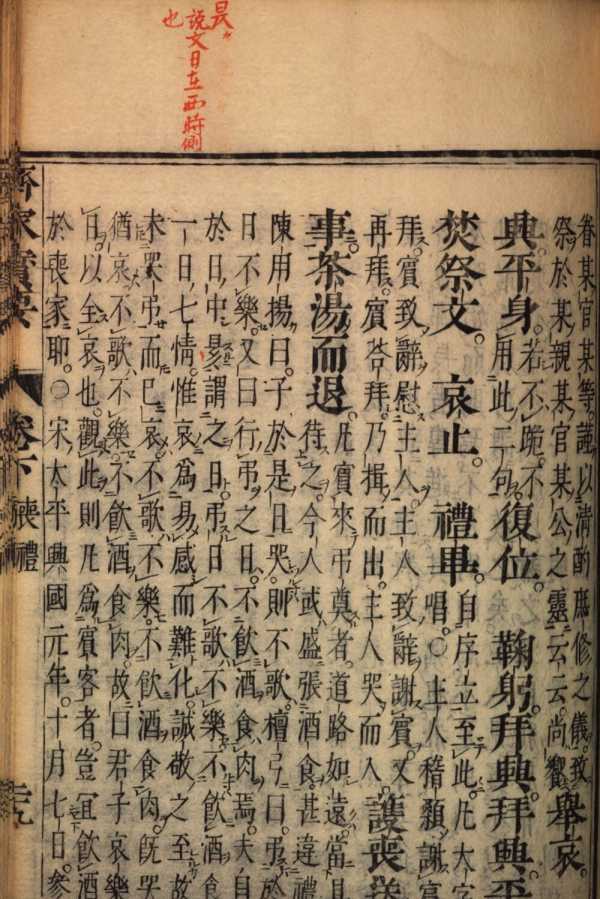 昃
説文日在西時側
也
眷某官某等謹以清酌庶修之儀致
祭於某親某官某公之靈云云尚饗
舉哀。
典平身。
若不跪不
用此二句
復位。鞠躬。拜興。拜興。平
焚祭文。哀止。禮畢。
自序立至此。凡大字
唱。○主人稽顙謝賓
拜。賓致辭慰主人。主人致辭謝賓。又
再拜。賓荅拜。乃揖而出。主人哭而入。
護喪送
事。茶湯而退。
凡賓來弔奠者。道路如遠。當具
待之。今人或盛張酒食。甚違禮
陳用揚曰。子於是日哭。則不歌。檀弓曰。弔於
日不樂。又曰行弔之日。不飲酒食肉焉。夫自
於日中昃謂之日。弔日不歌不樂不飲酒食
一日。七情。惟哀為易感而難化。誠敬之至。故
未哭弔而已哀。不歌不樂。不飲酒食肉。既哭
猶哀。不歌不樂。不飲酒食肉。故曰君子哀樂
日。以全哀也。觀此則凡為賓客者。豈冝飲酒
於喪家耶。○宋太平興國元年。十月七日。參
齊家寶要 卷下 喪禮